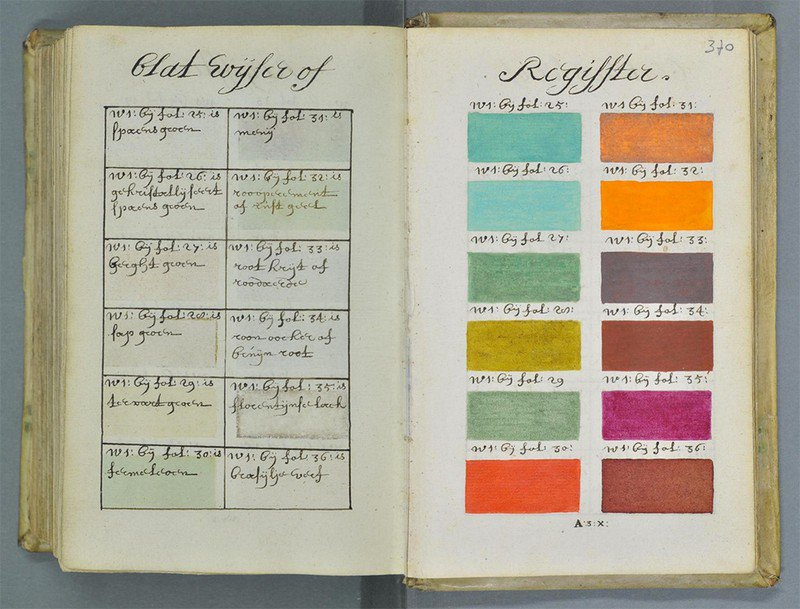 Blat wijser of
w1: bij fol: 25: is
spaens groen
w1: bij fol: 31: is
menij
w1: bij fol: 26: is
gekristallyseert
spaens groen
w1: bij fol: 32: is
rooopeement
of rust geel
w1: bij fol: 27: is
berght groen
w1: bij fol: 33: is
root krijt of
roodaerde
w1: bij fol: 28: is
sap groen
w1: bij fol: 34: is
roon oocker of
bruijn root
w1: bij fol: 29: is
terwart groen
w1: bij fol: 35: is
florentijnse lack
w1: bij fol: 30: is
w1: bij fol: 36: is
brasylje verf
370
Regisster.
w1: bij fol: 25:
w1 bij fol: 31:
w1: bij fol: 26:
w1: bij fol: 32:
w1: bij fol: 27:
w1: bij fol: 33:
w1: bij fol: 28:
w1: bij fol: 34:
w1: bij fol: 29
w1: bij fol: 35:
w1: bij fol: 30:
w1: bij fol: 36:
A:3:X: